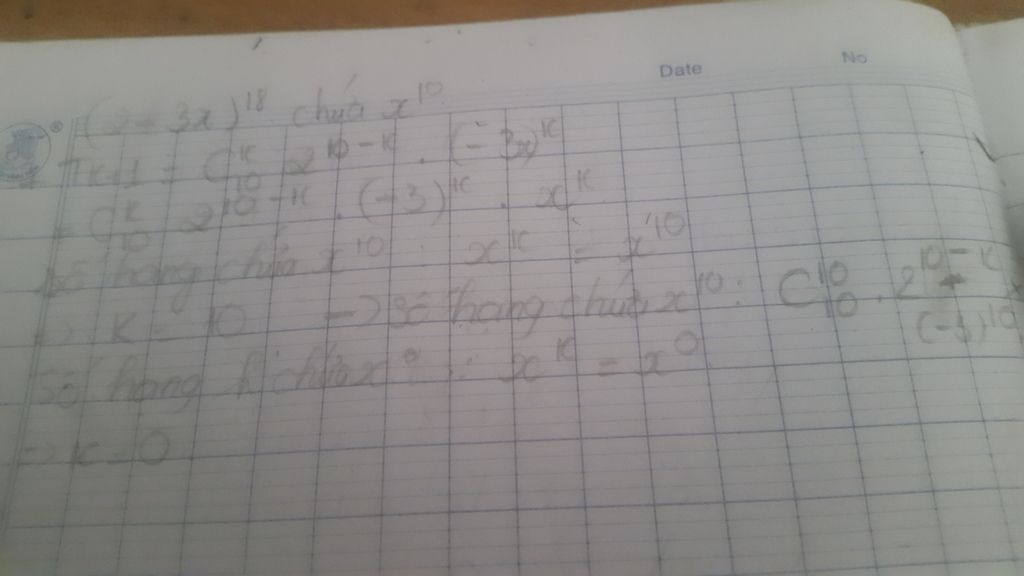 Date No
(2 - 3x)^18 chứa x^10
T_{k+1} = C_{10}^{k} 2^{10-k} . (-3x)^k
= C_{10}^{k} 2^{10-k} . (-3)^k . x^k
Số hạng chứa x^10 : x^k = x^10
=> k = 10 -> Số hạng chứa x^10 : C_{10}^{10} . 2^{10-k}
(-3)^10
Số hạng k chứa x^0 : x^k = x^0
-> k = 0